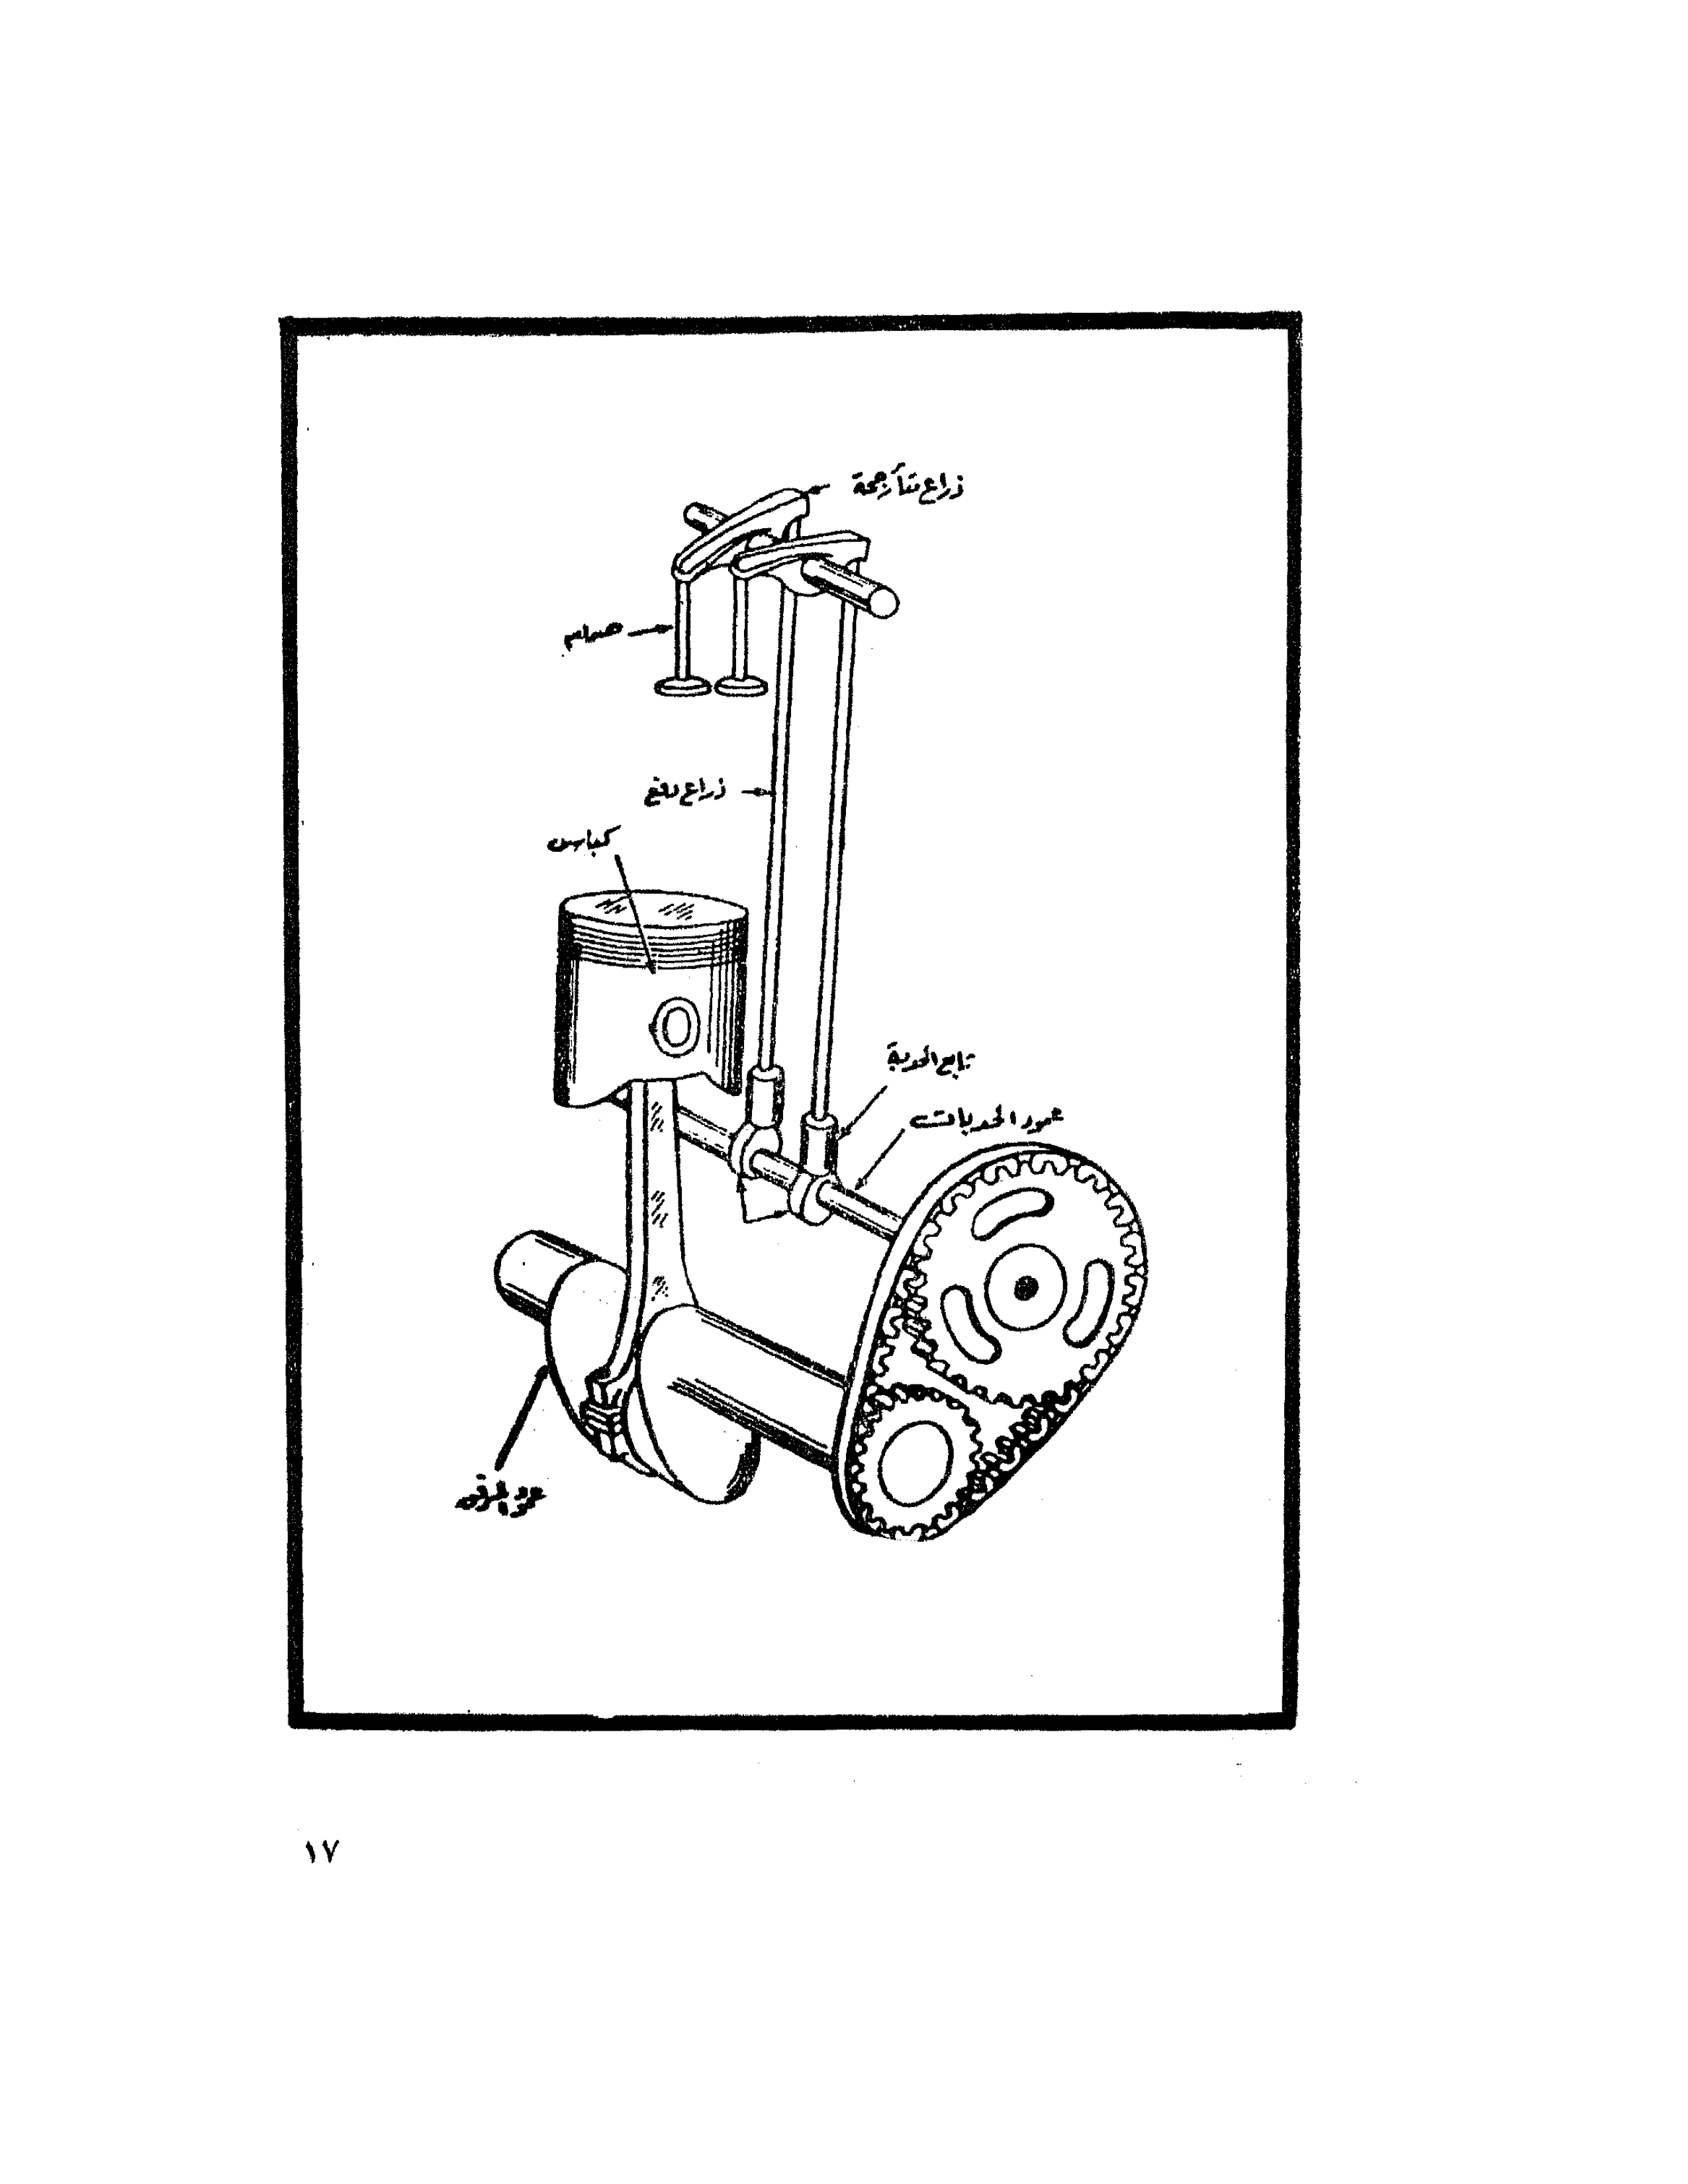 ذراع متأرجحة
صمام
ذراع دفع
كباس
تابع الحدبة
عمود الحدبات
عمود المرفق
١٧